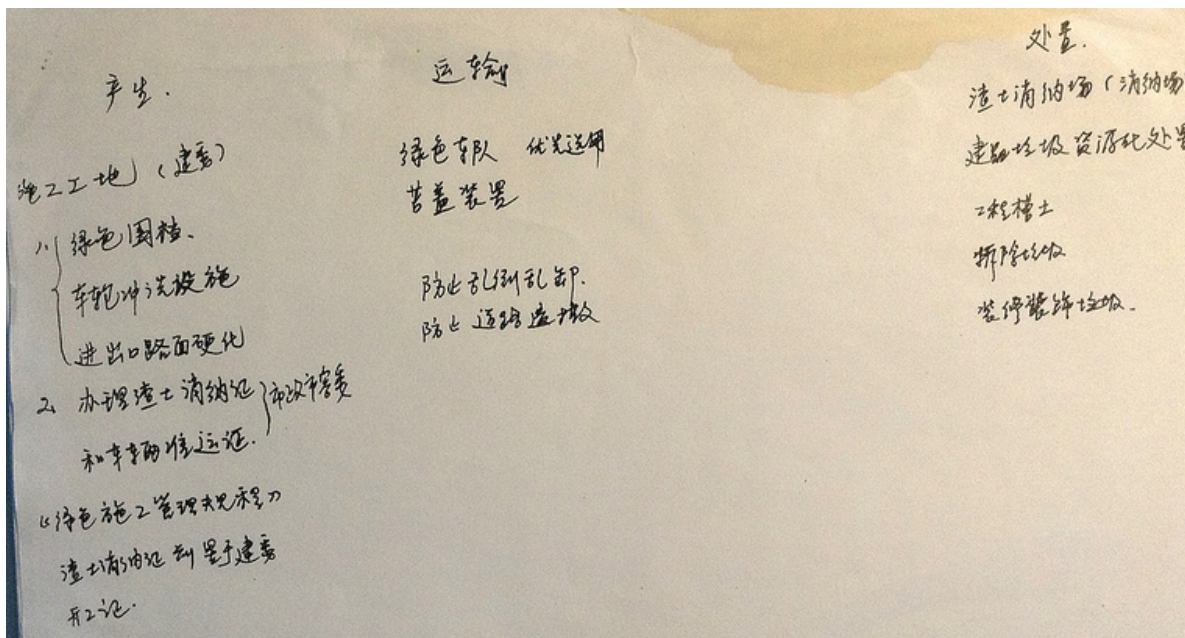 产生.
施工工地（建委）
1、绿色围档、
车轮冲洗设施
进出口路面硬化
2、办理渣土消纳证
和车辆准运证.
市政市容委
《绿色施工管理规程》
渣土消纳证前置于建委
开工证.
运输
绿色车队 优先选用
苫盖装置
防止乱倒乱卸.
防止道路遗撒
处置.
渣土消纳场（消纳场
建筑垃圾资源化处置
工程槽土
拆除垃圾
装修装饰垃圾.